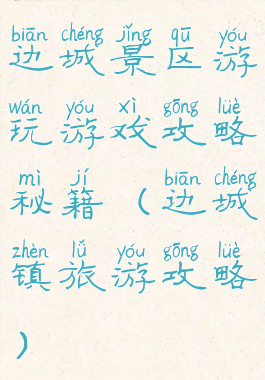 biān chéng jǐng qū yóu
边城景区游
wán yóu xì gōng lüè
玩游戏攻略
mì jí biān chéng
秘籍(边城
zhèn lǚ yóu gōng lüè
镇旅游攻略
)